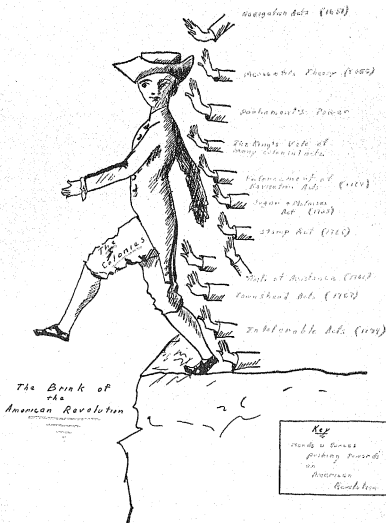 Navigation Acts (1651)
Mercantile Theory
Parliament's Power
The King's Veto of
Many colonial acts
Enforcement of
Navigation Acts
Sugar & Molasses
Act
Stamp Act
Writs of Assistance
Townshend Acts (1767)
Intolerable Acts (1774)
The Colonies
The Brink of
the
American Revolution
Key
Hands = Forces
pushing towards
an
American
Revolution